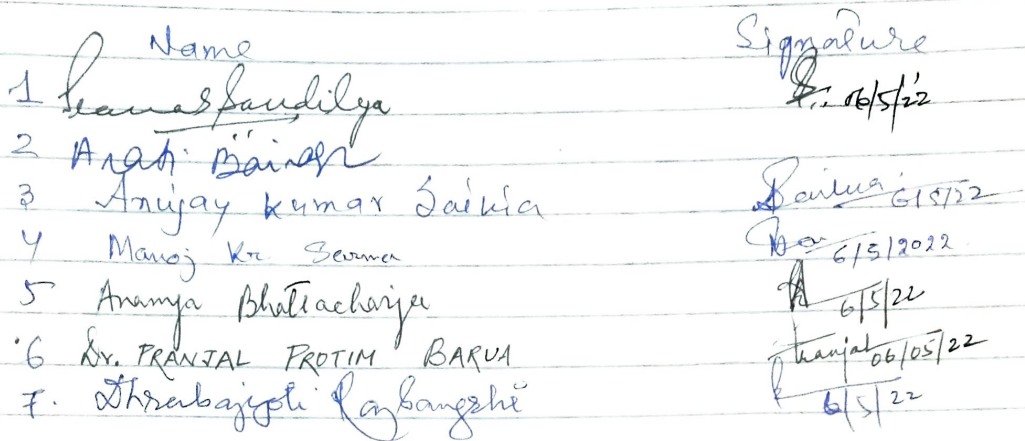 Name Signature
1 Sandilya 06/5/22
2 Arati
3 Anujay Kumar Saikia Saikia 6/5/22
4 Manoj Kr. 6/5/2022
5 Ananya Bhattacharjee 6/5/22
6 Dr. PRANJAL PROTIM BARUA Pranjal 06/05/22
7. Dhrubajyoti Rajbangshi 6/5/22